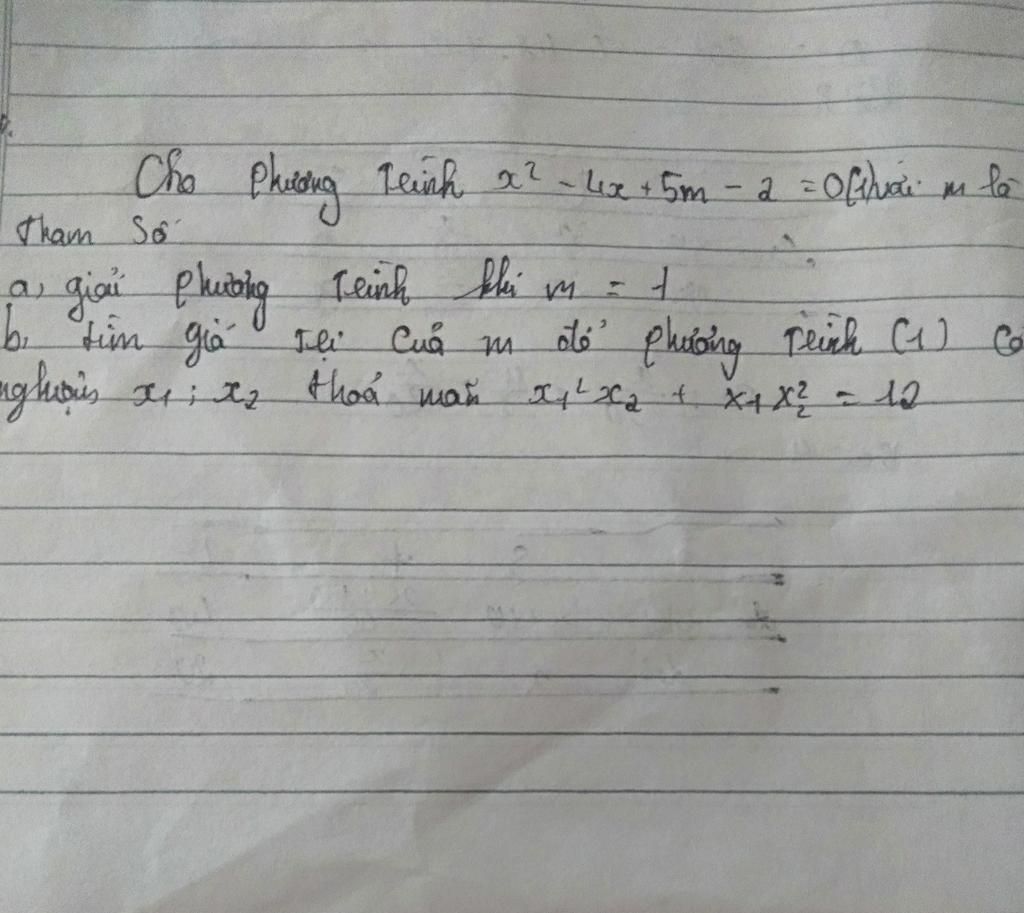 Cho phương trình x² - 4x + 5m - 2 = 0 (1) với m là
tham số
a, giải phương trình khi m = 1
b, tìm giá trị của m để phương trình (1) có
nghiệm x₁ ; x₂ thoả mãn x₁²x₂ + x₁x₂² = 12